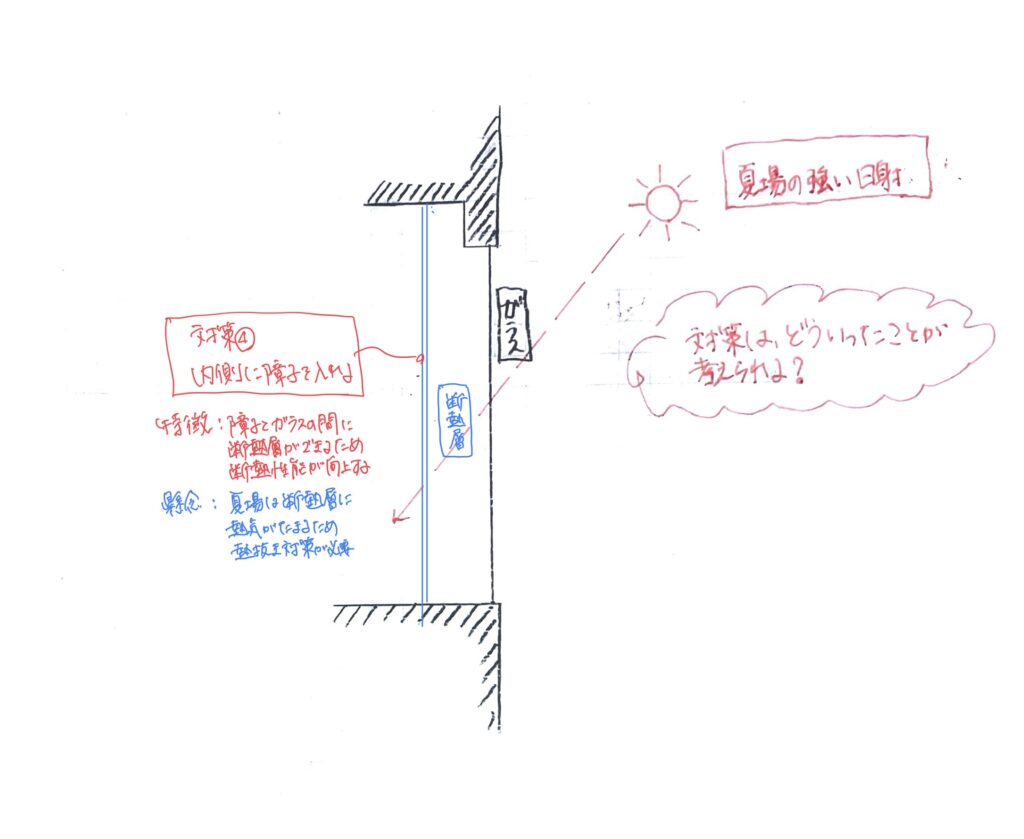 夏場の強い日射
対策は、どういったことが
考えられる?
ガラス
対策④
内側に障子を入れる
断熱層
特徴:障子とガラスの間に
断熱層ができるため
断熱性能が向上する
懸念:夏場は断熱層に
熱気がたまるため
熱抜き対策が必要